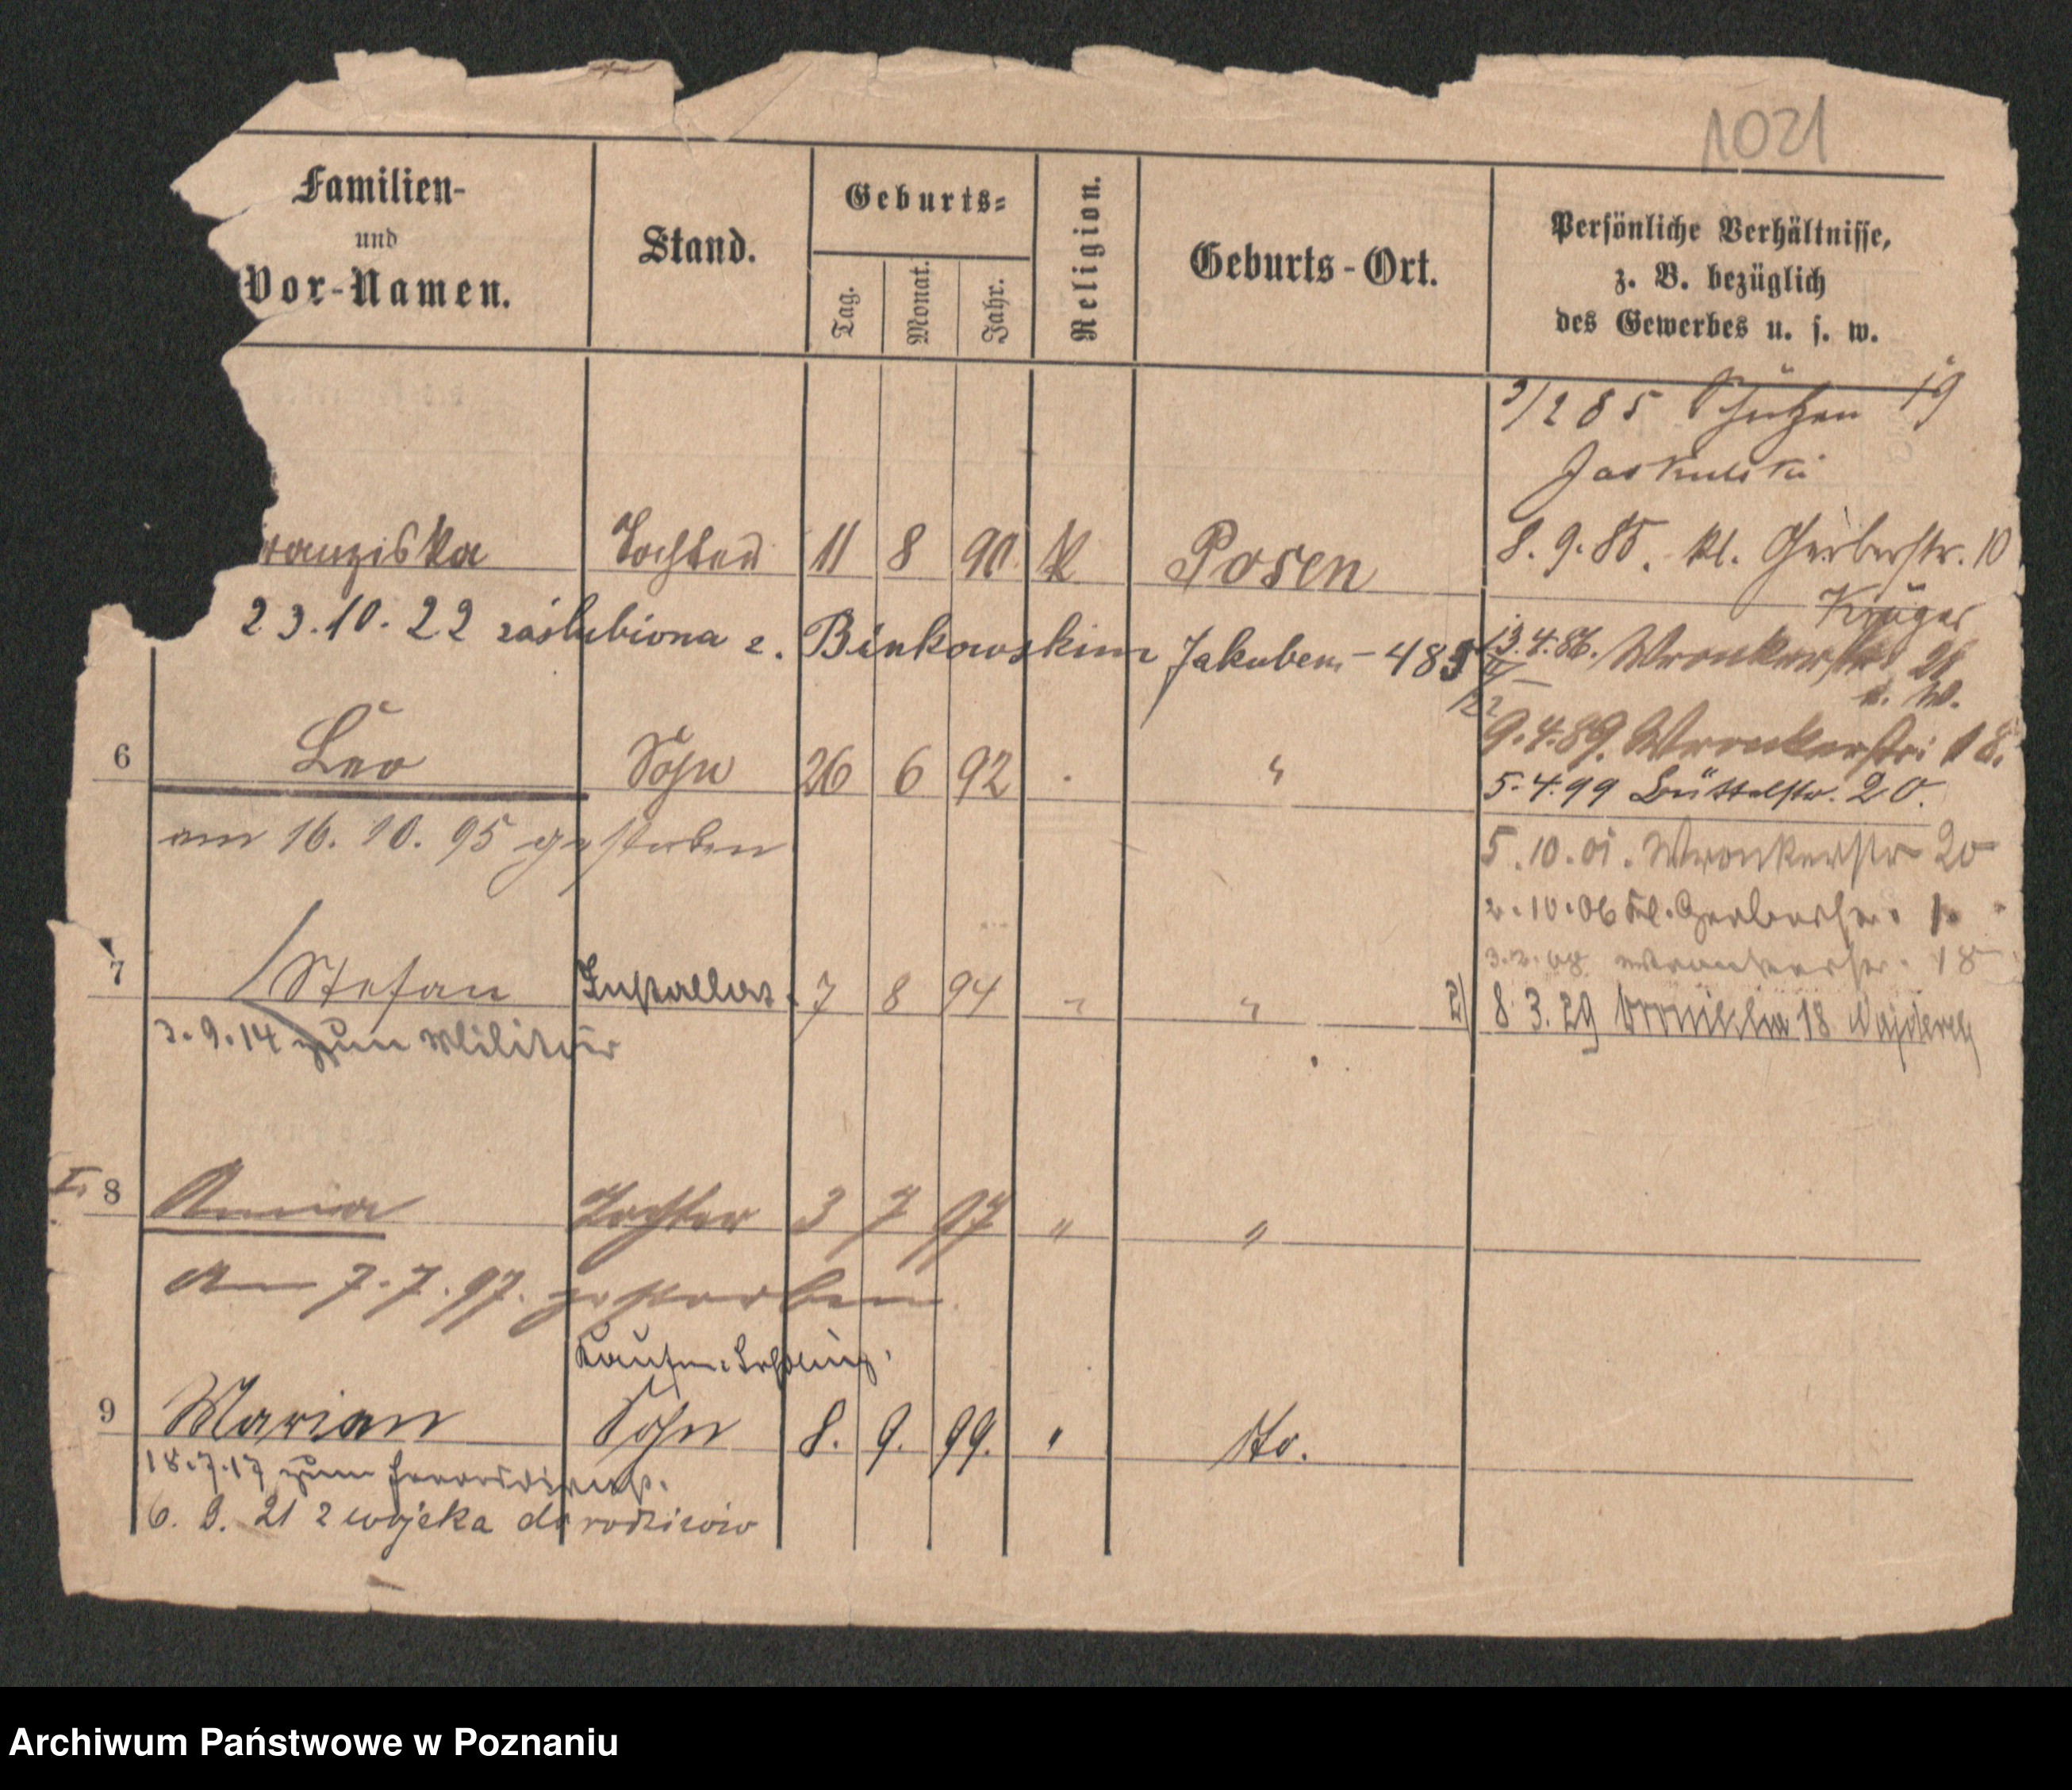 1021
Familien-
und
Vor-Namen.
Stand.
Geburts-
Tag.
Monat.
Jahr.
Religion.
Geburts-Ort.
Persönliche Verhältnisse,
z. B. bezüglich
des Gewerbes u. s. w.
3/2 85 Schützen 19
Jaskulski
ranziska Tochter 11 8 90 k Posen
8. 9. 85. Kl. Gerberstr. 10
Krüger
23.10.22 zaślubiona z. Binkowskim Jakubem - 483
13.4.86. Wronkerstr. 21
n. W.
6 Leo Sohn 26 6 92 "
9.4.89. Wronkerstr. 18.
5.4.99 Büttelstr. 20.
am 16. 10. 95 gestorben
5.10.01. Wronkerstr 20
2.10.06 Kl. Gerberstr. 1.
3.2.08 Wronkerstr. 18
7 Stefan Installat. 7 8 94 " "
2) 8. 3. 29 Wroniecka 18
3.9.14 zum Militär
I. 8 Anna Tochter 3 7 97 " "
Am 7.7.97. gestorben
Kaufm. Lehrling
9 Marian Sohn 8. 9. 99. " dto.
18.7.17 zum
6. 9. 21 z wojska do rodziców
Archiwum Państwowe w Poznaniu